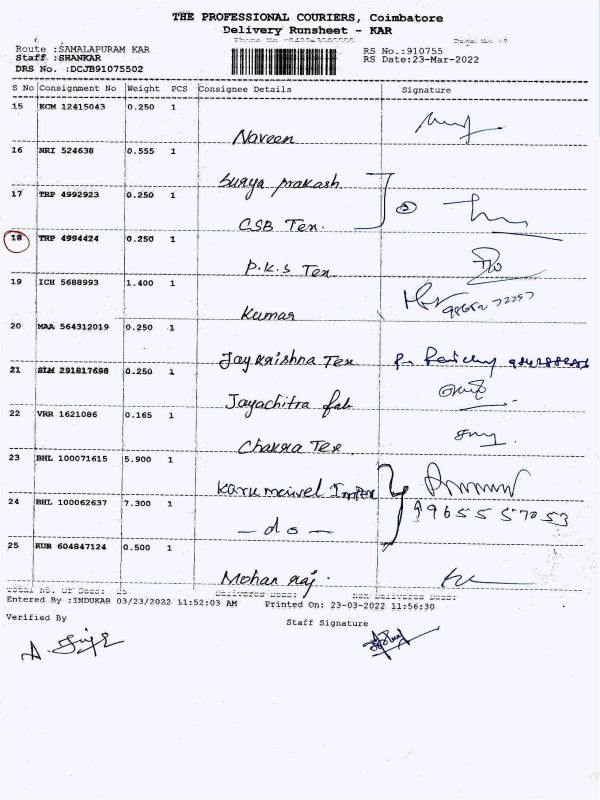 THE PROFESSIONAL COURIERS, Coimbatore
Delivery Runsheet - KAR
Route :SAMALAPURAM KAR
RS No.:910755
Staff :SHANKAR
RS Date:23-Mar-2022
DRS No. :DCJB91075502
S No Consignment No Weight PCS Consignee Details Signature
15 KCM 12415043 0.250 1
Naveen
16 NRI 524638 0.555 1
Surya prakash
17 TRP 4992923 0.250 1
CSB Tex. 2
18 TRP 4994424 0.250 1
P.K.S Tex
19 ICH 5688993 1.400 1
Kumar
20 MAA 564312019 0.250 1
Jay Krishna Tex
21 SLM 291817698 0.250 1
Jayachitra fab
22 VRR 1621086 0.165 1
Chakra Tex
23 BHL 100071615 5.900 1
24 BHL 100062637 7.300 1
99655 57053
- do -
25 KUR 604847124 0.500 1
Mohan raj.
Total No. Of Docs:
Delivered Docs:
Non Delivered Docs:
Entered By :INDUKAR 03/23/2022 11:52:03 AM Printed On: 23-03-2022 11:56:30
Verified By
Staff Signature